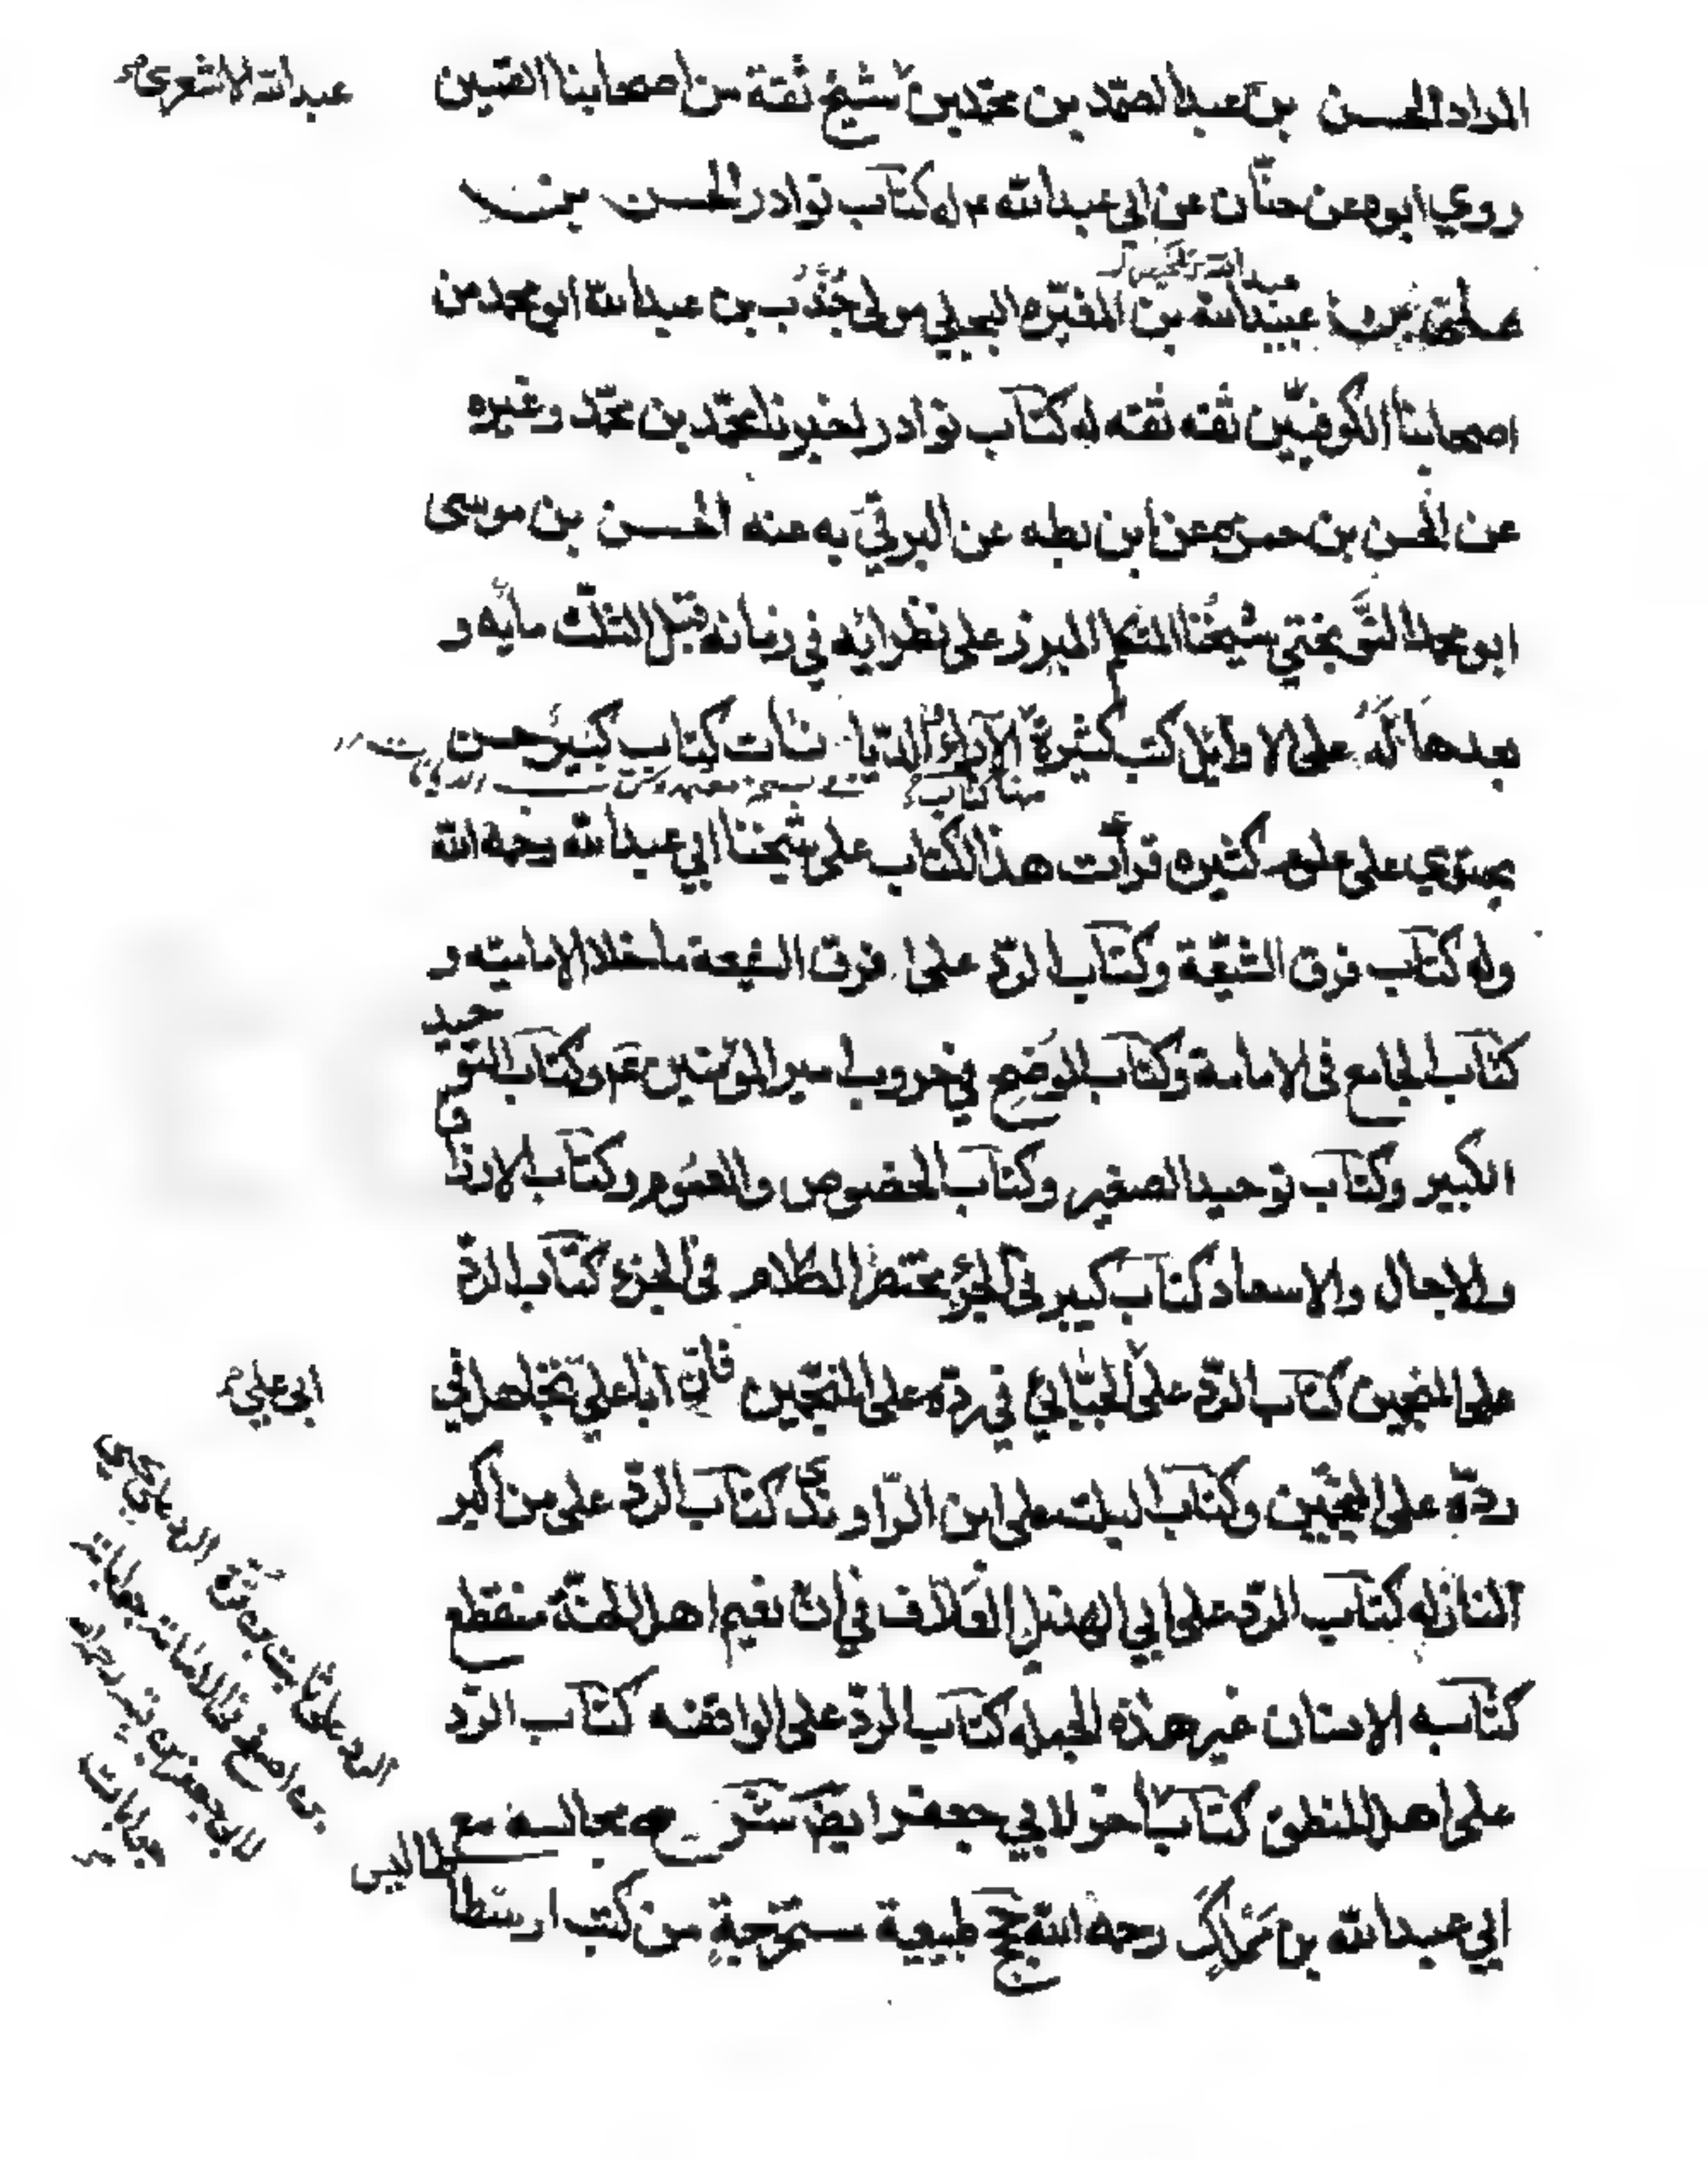 المراد الحسن بن عبد الصمد بن محمد بن شيخ ثقة من اصحابنا القميين
عبد الله الاشعري
روي ابوه عن حنان عن ابي عبد الله ع له كتاب نوادر الحسن بن
عبد الله
علي بن عبيد الله بن المغيره البجلي مولي جندب بن عبد الله ابو محمد من
اصحابنا الكوفيين ثقه ثقه له كتاب نوادر اخبرنا محمد بن محمد وغيره
عن الحسن بن حمزه عن ابن بطه عن البرقي به عنه الحسن بن موسى
ابو محمد النوبختي شيخنا المتكلم المبرز على نظرائه في زمانه قبل الثلث مايه و
بعدها له على الاوائل كتب كثيرة الآراء والديانات كتاب كبير حسن
منها كتاب
يحتوي على علوم كثيره قرأت هذا الكتاب على شيخنا ابي عبد الله رحمه الله
وله كتاب فرق الشيعة وكتاب الرد على فرق الشيعة ما خلا الامامية و
كتاب الجامع في الامامة وكتاب الموضح في حروب امير المؤمنين ع وكتاب التو
حيد
الكبير وكتاب توحيد الصغير وكتاب الخصوص والعموم وكتاب الارزا
ق
والاجال والاسعار كتاب كبير في الجزء مختصر الكلام في الجزء كتاب الرد
على المنجمين كتاب الرد على الجبائي في رده على المنجمين فان ابا علي تجاهل في
ابي علي
رده على المنجمين وكتاب النكت على ابن الراوندي كتاب الرد على من اكبر
المنازله كتاب الرد على ابي الهذيل العلاف في ان نعيم اهل الجنة منقطع
كتابه الانسان غير هذه الجمله كتاب الرد على الواقفه كتاب الرد
على اهل المنطق كتاب الرد على ثابت بن قره الرد على يحيي
بن اصفح في الامامة جوابات
لابي جعفر بن قبه رحمه الله
جوابات
اخر لابي جعفر ايضا شرح مجالسه مع
ابي عبد الله بن مملك رحمه الله حجج طبيعية مستخرجة من كتب ارسطا
طاليس